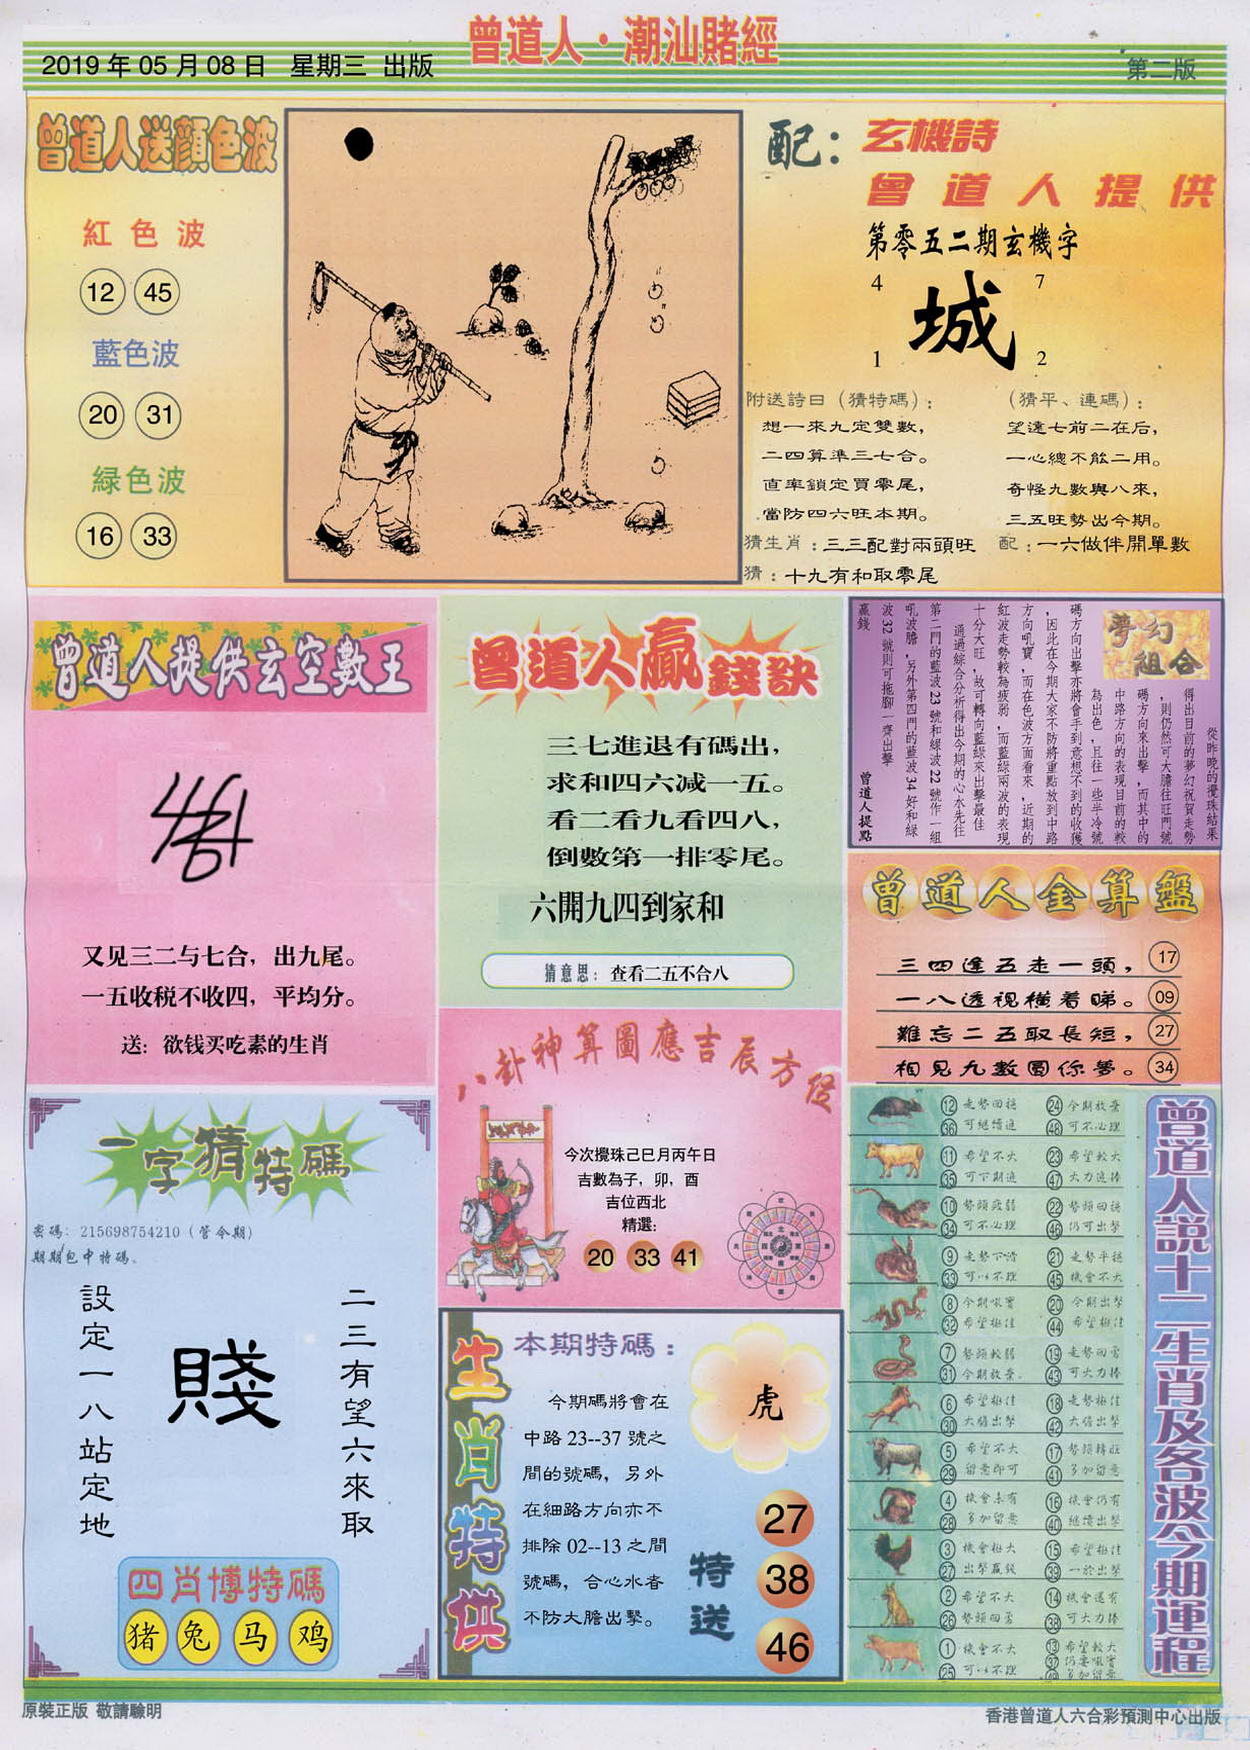 曾道人·潮汕賭經
2019 年 05 月 08 日 星期三 出版
第二版
曾道人送顔色波
紅色波
12 45
藍色波
20 31
緑色波
16 33
配：玄機詩
曾道人提供
第零五二期玄機字
4 7
城
1 2
附送詩曰（猜特碼）：
想一來九定雙數，
二四算準三七合。
直率鎖定買零尾，
當防四六旺本期。
（猜平、連碼）：
望遠七前二在后，
一心總不能二用。
奇怪九數與八來，
三五旺勢出今期。
猜生肖：三三配對兩頭旺
配：一六做伴開單數
猜：十九有和取零尾
曾道人提供玄空數王
又见三二与七合，出九尾。
一五收税不收四，平均分。
送：欲钱买吃素的生肖
曾道人贏錢訣
三七進退有碼出，
求和四六减一五。
看二看九看四八，
倒數第一排零尾。
六開九四到家和
猜意思：查看二五不合八
夢幻組合
從昨晚的攪珠結果
得出目前的夢幻祝賀走勢
，則仍然可大膽往旺門號
碼方向來出擊，而其中的
中路方向的表現目前的較
為出色，且往一些半冷號
碼方向出擊亦將會手到意想不到的收獲
，因此在今期大家不防將重點放到中路
方向吼寶，而在色波方面看來，近期的
紅波走勢較為疲弱，而藍綠兩波的表現
十分大旺，故可轉向藍綠來出擊最佳
通過綜合分析得出今期的心水先往
第二門的藍波 23 號和綠波 22 號作一組
吼波膽，另外第四門的藍波 34 好和綠
波 32 號則可拖腳一齊出擊
贏錢
曾道人提點
曾道人金算盤
三四逢五走一頭，17
一八透視橫着睇。09
難忘二五取長短，27
相見九數圓你夢。34
一字猜特碼
密碼：215698754210（管今期）
期期包中特碼。
二三有望六來取
賤
設定一八站定地
四肖博特碼
猪 兔 马 鸡
八卦神算圖應吉辰方位
今次攪珠己巳月丙午日
吉數為子，卯，酉
吉位西北
精選：
20 33 41
生肖特供
本期特碼：
虎
今期碼將會在
中路 23--37 號之
間的號碼，另外
在細路方向亦不
排除 02--13 之間
號碼，合心水者
不防大膽出擊。
特送
27
38
46
曾道人說十二生肖及各波今期運程
12 走勢回穩 24 今期放棄
36 可繼續追 48 可不必理
11 希望不大 23 希望較大
35 可下期追 47 大力追捧
10 勢頭疲弱 22 勢頭回穩
34 可不必理 46 仍可出擊
9 走勢下滑 21 走勢平穩
33 可以不理 45 機會不大
8 今期吼寶 20 今期出擊
32 希望極佳 44 希望極佳
7 勢頭較弱 19 走勢回勇
31 今期放棄 43 可大力捧
6 希望極佳 18 走勢極佳
30 大膽出擊 42 大膽出擊
5 希望不大 17 勢頭轉旺
29 留意即可 41 多加留意
4 機會未有 16 機會仍有
28 多加留意 40 繼續出擊
3 機會極大 15 希望極佳
27 出擊贏錢 39 一於出擊
2 希望不大 14 機會還有
26 勢頭回勇 38 可大力捧
1 機會不大 13 希望較大
25 可以不理 37 仍要吼實
多加留意
原裝正版 敬請驗明
香港曾道人六合彩預測中心出版